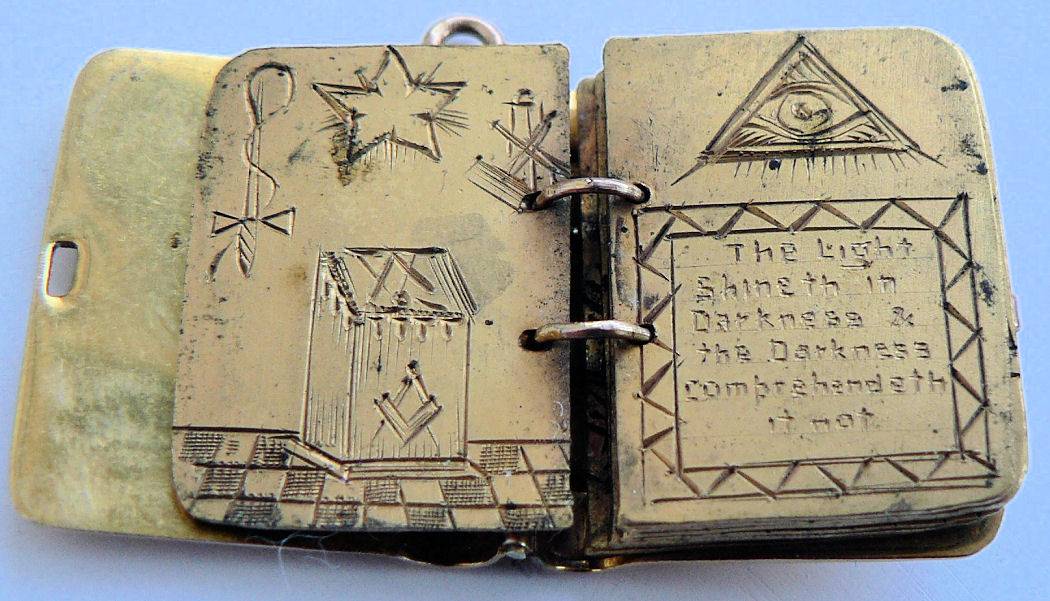 The Light
Shineth in
Darkness &
the Darkness
comprehendeth
it not